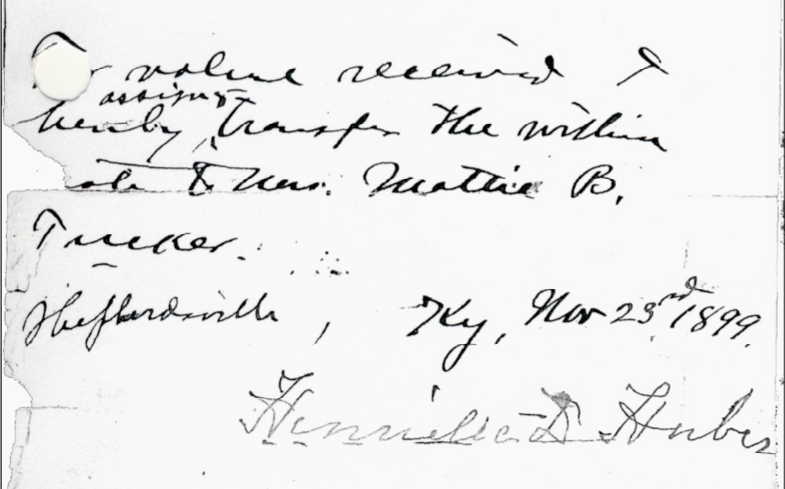 For value received I
hereby, assign & transfer the within
note to Mrs. Mattie B.
Tucker.
Shepherdsville, Ky, Nov 23rd 1899.
Henrietta D Huber